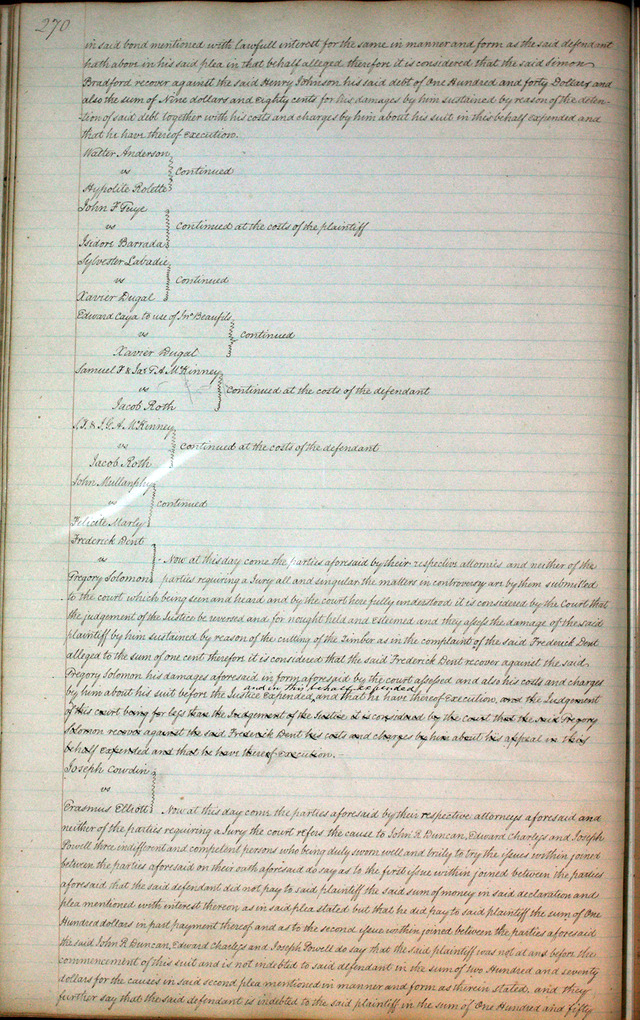 270
in said bond mentioned with lawfull interest for the same in manner and form as the said defendant
hath above in his said plea in that behalf alleged therefore it is considered that the said Simon
Bradford recover against the said Henry Johnson his said debt of One Hundred and forty Dollars and
also the sum of Nine dollars and Eighty cents for his damages by him sustained by reason of the deten-
-tion of said debt together with his costs and charges by him about his suit in this behalf expended and
that he have thereof Execution.
Walter Anderson
vs continued
Hypolite Rolette
John F
vs Continued at the costs of the plaintiff
Isidore Barrada
Sylvester Labadie
vs Continued
Xavier Dugal
Edward Caya to use of Jno Beaufils
vs continued
Xavier Dugal
Samuel F & Jas T. A. McKinney
vs continued at the costs of the defendant
Jacob Roth
A. McKinney
vs continued at the costs of the defendant
Jacob Roth
John Mullanphy
vs continued
Felicite Marly
Frederick Dent
vs Now at this day come the parties aforesaid by their respective attornies and neither of the
Gregory Solomon parties requiring a Jury all and singular the matters in controversy are by them submitted
to the court which being seen and heard and by the court here fully understood it is considered by the Court that
the judgement of the Justice be reversed and for nought held and Esteemed and they assess the damage of the said
plaintiff by him sustained by reason of the cutting of the timber as in the complaint of the said Frederick Dent
alleged to the sum of one cent therefore it is considered that the said Frederick Dent recover against the said
Gregory Solomon his damages aforesaid in form aforesaid by the court assessed and also his costs and charges
and in this behalf expended
by him about his suit before the Justice Expended and that he have thereof Execution, and the Judgement
of this court being for less than the Judgement of the Justice it is considered by the court that the said Gregory
Solomon recover against the said Frederick Dent his costs and charges by him about his appeal in this
behalf expended and that he have thereof Execution.
Joseph Cowdin
vs
Erasmus Elliott Now at this day come the parties aforesaid by their respective attorneys aforesaid and
neither of the parties requiring a Jury the court refers the cause to John R Duncan, Edward Charless and Joseph
Powell three indifferent and competent persons who being duly sworn well and truly to try the issues within joined
between the parties aforesaid on their oath aforesaid do say as to the first issue within joined between the parties
aforesaid that the said defendant did not pay to said plaintiff the said sum of money in said declaration and
plea mentioned with interest thereon as in said plea stated but that he did pay to said plaintiff the sum of One
Hundred dollars in part payment thereof and as to the second issue within joined between the parties aforesaid
the said John R Duncan, Edward Charless and Joseph Powell do say that the said plaintiff was not at ans before the
commencement of this suit and is not indebted to said defendant in the sum of two Hundred and seventy
dollars for the causes in said second plea mentioned in manner and form as therein stated, and they
further say that the said defendant is indebted to the said plaintiff in the sum of One Hundred and fifty